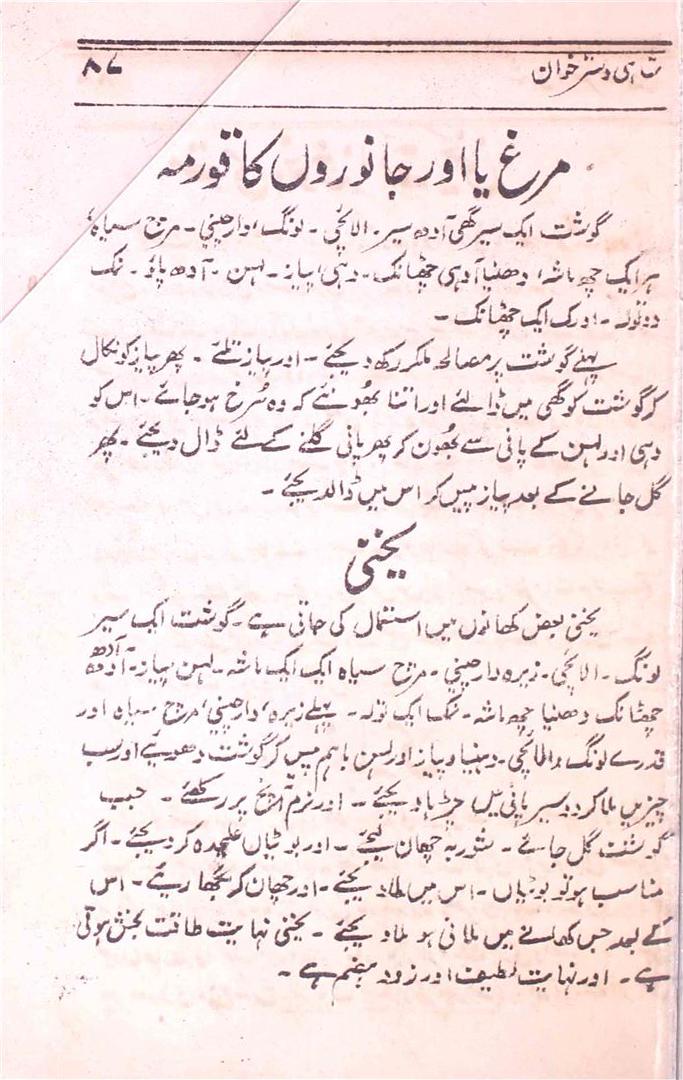 شاہی دسترخوان ۸۷
مرغ یا اور جانوروں کا قورمہ
گوشت ایک سیر گھی آدھ سیر۔ الائچی۔ لونگ، دارچینی۔ مرچ سیاہ،
ہر ایک چھ ماشہ، دھنیا آدہی چھٹانک۔ دہی، پیاز۔ لہسن۔ آدھ پاؤ۔ نمک
دو تولہ۔ ادرک ایک چھٹانک۔
پہلے گوشت پر مصالحہ ملکر رکھ دیجئے۔ اور پیاز تلئے۔ پھر پیاز کو نکال
کر گوشت کو گھی میں ڈالئے اور اتنا بھونئے کہ وہ سُرخ ہو جائے۔ اس کو
دہی اور لہسن کے پانی سے بھون کر پھر پانی گلنے کے لئے ڈال دیجئے۔ پھر
گل جانے کے بعد پیاز پیس کر اس میں ڈالدیجئے۔
یخنی
یخنی بعض کھانوں میں استعمال کی جاتی ہے۔ گوشت ایک سیر
لونگ۔ الائچی۔ زیرہ دارچینی۔ مرچ سیاہ ایک ایک ماشہ۔ لہسن پیاز۔ آدھ آدھ
چھٹانک دھنیا چھ ماشہ۔ نمک ایک تولہ۔ پہلے زیرہ، دارچینی، مرچ سیاہ اور
قدرے لونگ والائچی۔ دہنیا و پیاز اور لہسن باہم پیس کر گوشت دھویئے اور سب
چیزیں ملا کر دو سیر پانی میں چڑہا دیجئے۔ اور نرم آنچ پر رکھئے۔ جب
گوشت گل جائے۔ شوربہ چھان لیجئے۔ اور بوٹیاں علیحدہ کر دیجئے۔ اگر
مناسب ہو تو بوٹیاں۔ اس میں ملا دیجئے۔ اور چھان کر بگھاریئے۔ اس
کے بعد جس کھانے میں ملانی ہو ملا دیجئے۔ یخنی نہایت طاقت بخش ہوتی
ہے۔ اور نہایت لطیف اور زود ہضم ہے۔